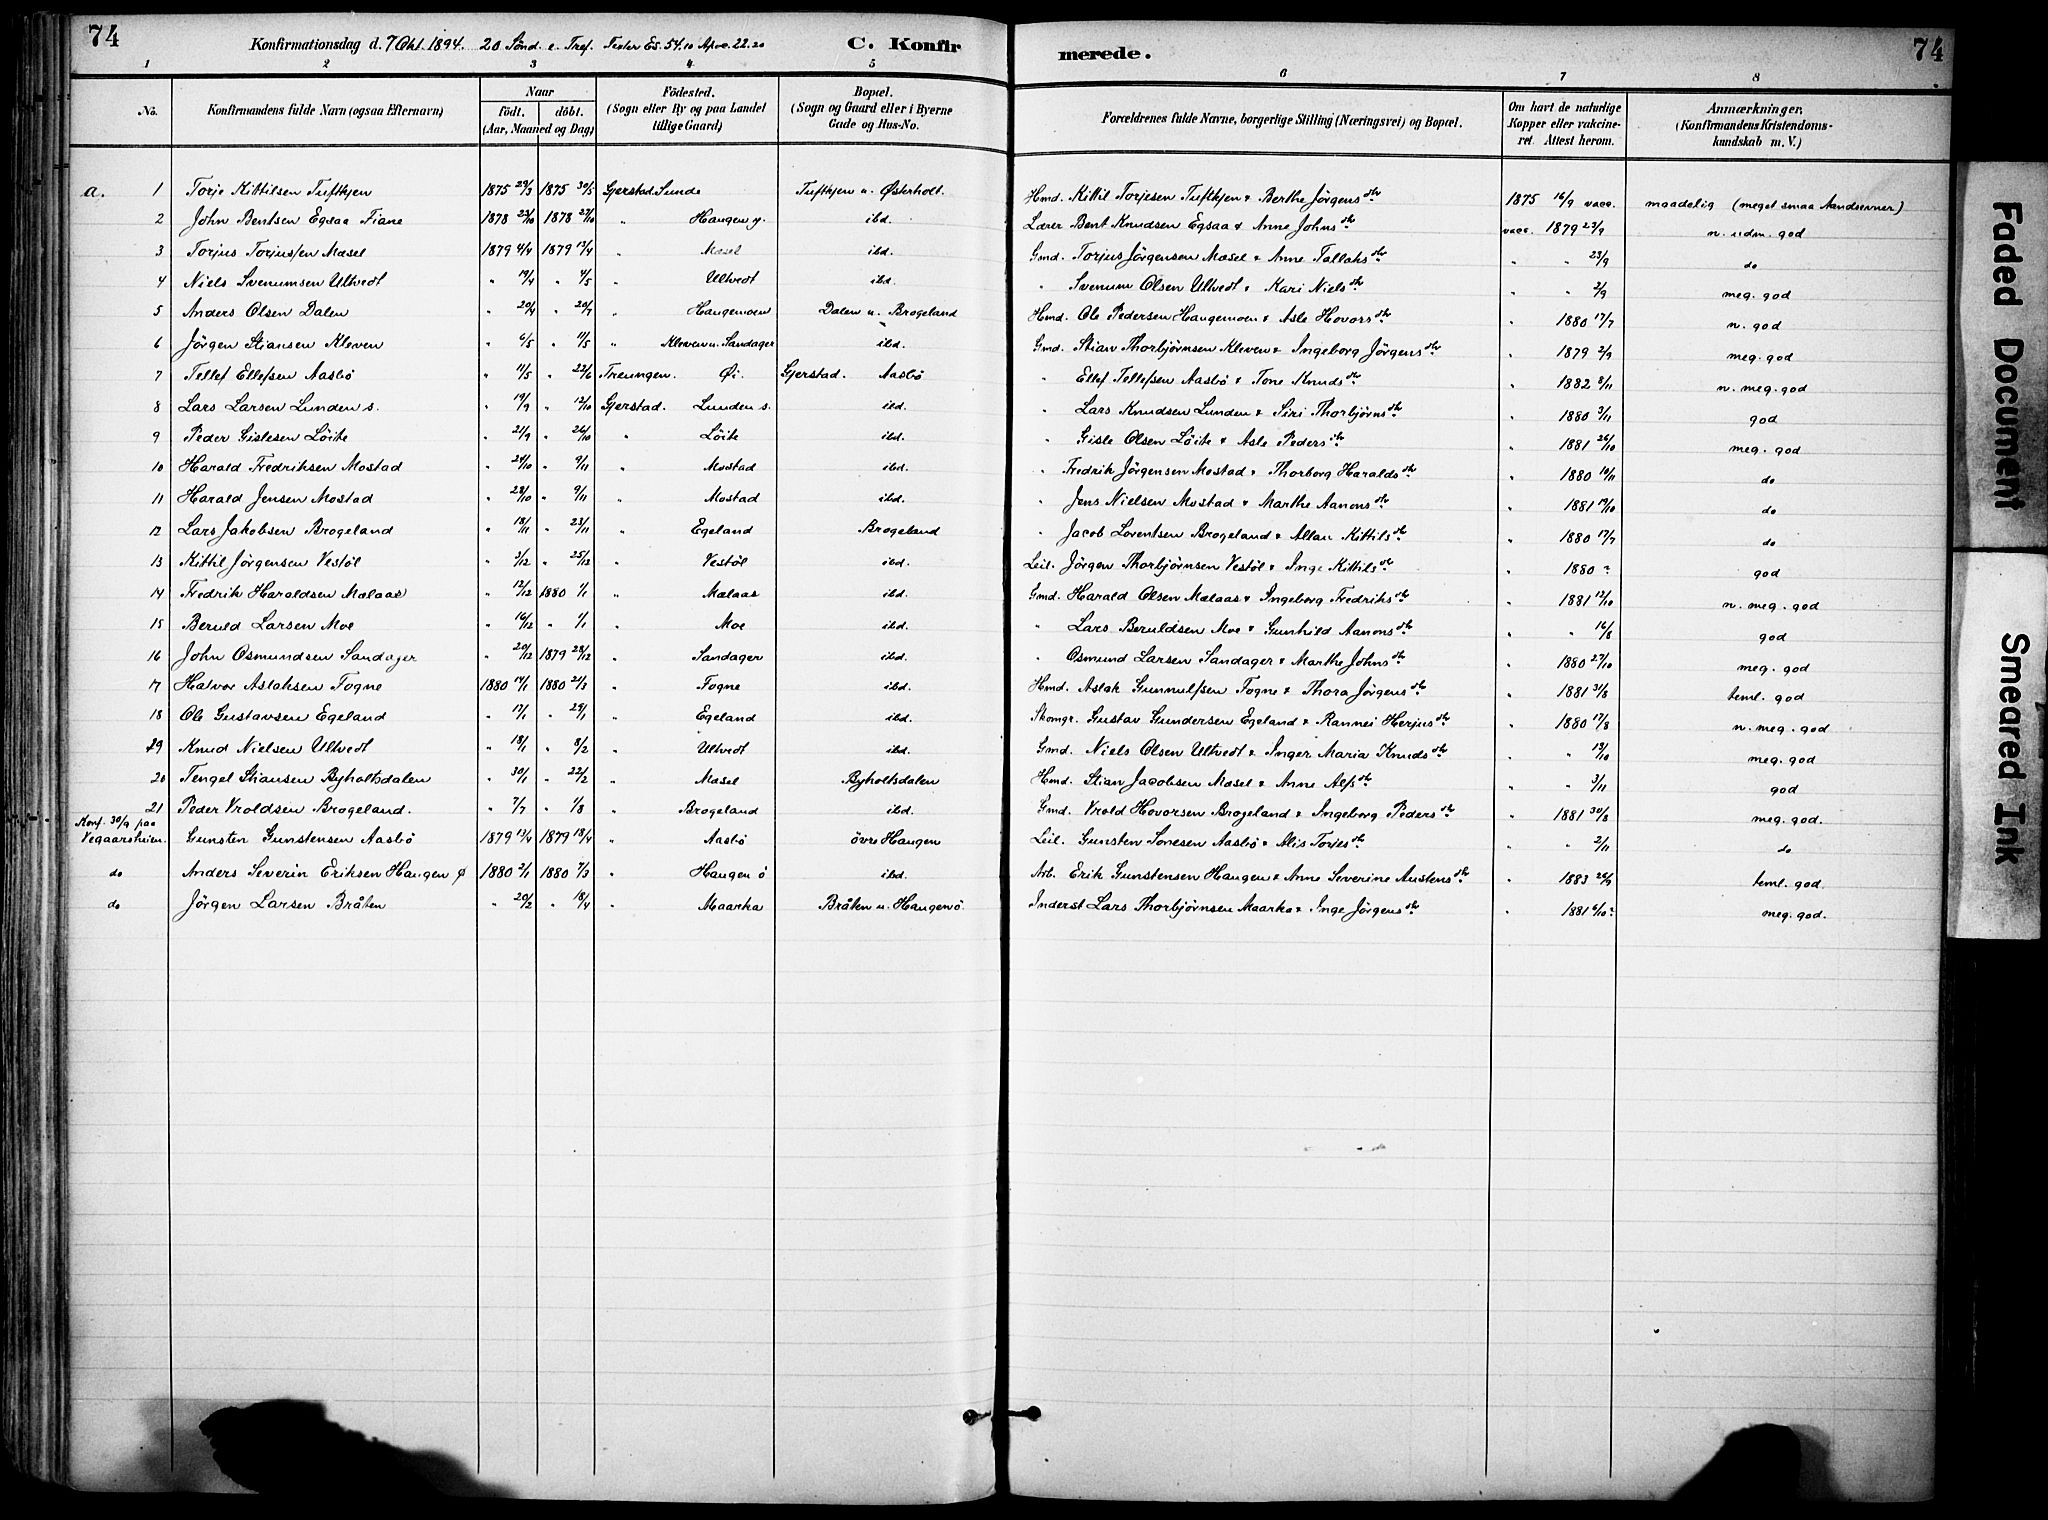 74
Konfirmationsdag d. 7 Okt. 1894. 20 Sönd. e. Tref. Texter Es. 54.10 Apoc. 22.20
C. Konfirmerede.
74
1 2 3 4 5 6 7 8
No. Konfirmandens fulde Navn (ogsaa Efternavn) Naar födt. döbt. (Aar, Maaned og Dag) Födested. (Sogn eller By og paa Landet tillige Gaard) Bopæl. (Sogn og Gaard eller i Byerne Gade og Hus-No. Forældrenes fulde Navne, borgerlige Stilling (Næringsvei) og Bopæl. Om havt de naturlige Kopper eller vakcineret. Attest herom. Anmærkninger, (Konfirmandens Kristendomskundskab m. V.)
a. 1 Torje Kittilsen Tuftkjen 1875 29/3 1875 30/5 Gjerstad Sunde Tuftkjen u. Østerholt. Hmd. Kittil Torjesen Tuftkjen & Berthe Jörgensdtr 1875 16/9 vacc. maadelig (meget smaa Aandsevner)
2 John Bentsen Egsaa Fiane 1878 22/10 1878 27/10 " Haugen y. ibd. Lærer Bent Knudsen Egsaa & Anne Johnsdtr vacc. 1879 23/9 n. udm. god
3 Torjus Torjussen Mæsel 1879 4/4 1879 13/4 " Mæsel ibd. Gmd. Torjus Jörgensen Mæsel & Anne Tallaksdtr " " 23/9 do
4 Niels Svenumsen Ultvedt " 19/4 " 4/5 " Ultvedt ibd. " Svenum Olsen Ultvedt & Kari Nielsdtr " " 2/9 meg. god
5 Anders Olsen Dalen " 20/4 " 20/7 " Haugemoen Dalen u. Brogeland Hmd. Ole Pedersen Haugemoen & Asle Hovorsdtr " 1880 17/7 n. god
6 Jörgen Stiansen Kleven " 6/5 " 11/5 " Kleven u. Sandager ibd. Gmd. Stian Thorbjörnsen Kleven & Ingeborg Jörgensdtr " 1879 2/9 meg. god
7 Tellef Ellefsen Aasbö " 11/5 " 22/6 Treungen. Øi. Gjerstad. Aasbö " Ellef Tellefsen Aasbö & Tone Knudsdtr " 1882 8/11 n. meg. god
8 Lars Larsen Lunden s. " 19/9 " 12/10 Gjerstad. Lunden s. ibd. " Lars Knudsen Lunden & Siri Thorbjörnsdtr " 1880 3/11 god
9 Peder Gislesen Löite " 21/9 " 26/10 " Löite ibd. " Gisle Olsen Löite & Asle Pedersdtr " 1881 26/10 meg. god
10 Harald Fredriksen Mostad " 24/10 " 9/11 " Mostad ibd. " Fredrik Jörgensen Mostad & Thorborg Haraldsdtr " 1880 10/11 do
11 Harald Jensen Mostad " 28/10 " 9/11 " Mostad ibd. " Jens Nielsen Mostad & Marthe Aanonsdtr " 1881 19/10 do
12 Lars Jakobsen Brogeland " 18/11 " 23/11 " Egeland Brogeland " Jacob Lorentsen Brogeland & Allan Kittilsdtr " 1880 17/7 do
13 Kittil Jörgensen Vestöl " 3/12 " 25/12 " Vestöl ibd. Leil. Jörgen Thorbjörnsen Vestöl & Inge Kittilsdtr " 1880 ? god
14 Fredrik Haraldsen Mælaas " 12/12 1880 1/1 " Mælaas ibd. Gmd. Harald Olsen Mælaas & Ingeborg Fredriksdtr " 1881 12/10 n. meg. god
15 Beruld Larsen Moe " 16/12 " 1/1 " Moe ibd. " Lars Beruldsen Moe & Gunhild Aanonsdtr " " 16/8 god
16 John Osmundsen Sandager " 20/12 1879 28/12 " Sandager ibd. " Osmund Larsen Sandager & Marthe Johnsdtr " 1880 27/10 meg. god
17 Halvor Aslaksen Fogne 1880 14/1 1880 21/3 " Fogne ibd. Hmd. Aslak Gunnulfsen Fogne & Thora Jörgensdtr " 1881 31/8 teml. god
18 Ole Gustavsen Egeland " 17/1 " 29/1 " Egeland ibd. Skomgr. Gustav Gundersen Egeland & Rannei Herjusdtr " 1880 17/8 n. meg. god
19 Knud Nielsen Ultvedt " 18/1 " 8/2 " Ultvedt ibd. Gmd. Niels Olsen Ultvedt & Inger Maria Knudsdtr " " 13/10 meg. god
20 Tengel Stiansen Byholtsdalen " 30/1 " 22/2 " Mæsel Byholtsdalen Hmd. Stian Jacobsen Mæsel & Anne Alfsdtr " " 3/11 god
21 Peder Vroldsen Brogeland. " 7/7 " 1/8 " Brogeland ibd. Gmd. Vrold Hovorsen Brogeland & Ingeborg Pedersdtr " 1881 30/8 meg. god.
Konf. 30/9 paa Vegaarsheien. Gunsten Gunstensen Aasbö 1879 13/4 1879 18/4 " Aasbö övre Haugen Leil. Gunsten Sonesen Aasbö & Alis Torjesdtr " " 2/11 do
do Anders Severin Eriksen Haugen ø 1880 2/1 1880 7/3 " Haugen ö ibd. Arb. Erik Gunstensen Haugen & Anne Severine Austensdtr " 1883 26/9 teml. god.
do Jörgen Larsen Bråten " 20/2 " 18/4 " Maarka Bråten u. Haugen ö. Inderst Lars Thorbjörnsen Maarka & Inge Jörgensdtr " 1881 6/10 ? meg. god.
Faded Document
Smeared Ink